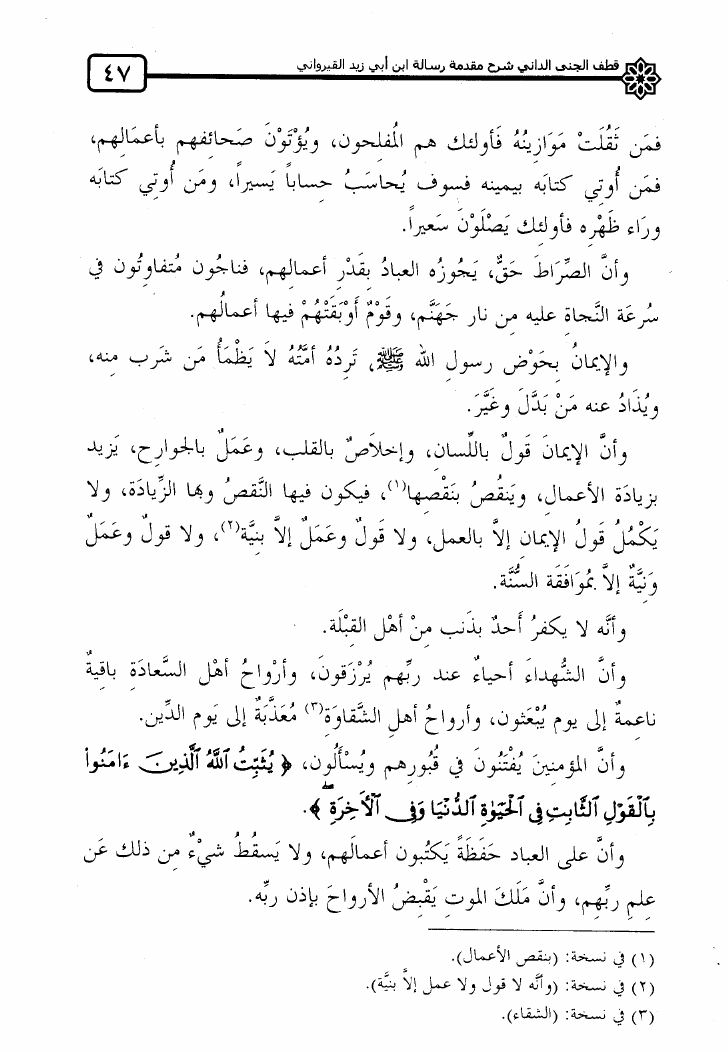 قطف الجنى الداني شرح مقدمة رسالة ابن أبي زيد القيرواني
٤٧
فمَن ثَقُلَتْ مَوَازِينُهُ فَأولئك هم المُفلحون، ويُؤْتَوْنَ صَحائفهم بأعمَالِهم،
فمَن أُوتِي كتابَه بيمينه فسوف يُحاسَبُ حِساباً يَسيراً، ومَن أُوتِي كتابَه
ورَاء ظَهْرِه فأولئك يَصْلَوْنَ سَعيراً.
وأنَّ الصِّرَاطَ حَقٌّ، يَجُوزُه العبادُ بِقَدْرِ أعمالِهم، فناجُون مُتفاوِتُون في
سُرعَة النَّجاةِ عليه مِن نار جَهَنَّم، وقَوْمٌ أَوْبَقَتْهُمْ فيها أعمالُهم.
والإيمانُ بِحَوْضِ رسولِ الله ﷺ، تَرِدُهُ أمَّتُهُ لاَ يَظْمَأُ مَن شَرب منه،
ويُذَادُ عنه مَنْ بَدَّلَ وغَيَّرَ.
وأنَّ الإيمانَ قَولٌ باللِّسانِ، وإخلاَصٌ بالقلب، وعَمَلٌ بالجوارِح، يَزيد
بزيادَة الأعمالِ، ويَنقُصُ بنَقْصِها(١)، فيكون فيها النَّقصُ وبها الزِّيادَة، ولا
يَكْمُلُ قَولُ الإيمانِ إلاَّ بالعمل، ولا قَولٌ وعَمَلٌ إلاَّ بنِيَّة(٢)، ولا قولٌ وعَمَلٌ
وَنِيَّةٌ إلاَّ بمُوَافَقَة السُّنَّة.
وأنَّه لا يكفرُ أَحدٌ بذَنب مِنْ أهْل القِبْلَة.
وأنَّ الشُّهداءَ أحياءٌ عند ربِّهم يُرْزَقونَ، وأرْواحُ أهْل السَّعادَةِ باقيةٌ
ناعِمةٌ إلى يوم يُبْعَثون، وأرواحُ أهلِ الشَّقاوَةِ(٣) مُعَذَّبَةٌ إلى يَوم الدِّين.
وأنَّ المؤمنِينَ يُفْتَنُونَ في قُبُورِهم ويُسْأَلُون، ﴿يُثَبِّتُ ٱللَّهُ ٱلَّذِينَ ءَامَنُوا۟
بِٱلْقَوْلِ ٱلثَّابِتِ فِى ٱلْحَيَوٰةِ ٱلدُّنْيَا وَفِى ٱلْأَخِرَةِ ۖ﴾.
وأنَّ على العباد حَفَظَةً يَكتُبون أعمالَهم، ولا يَسقُطُ شيْءٌ مِن ذلك عَن
عِلمِ ربِّهِم، وأنَّ مَلَكَ الموتِ يَقْبِضُ الأرواحَ بإذن ربِّه.
(١) في نسخة: (بنقص الأعمال).
(٢) في نسخة: (وأنَّه لا قول ولا عمل إلاَّ بنيَّة).
(٣) في نسخة: (الشقاء).